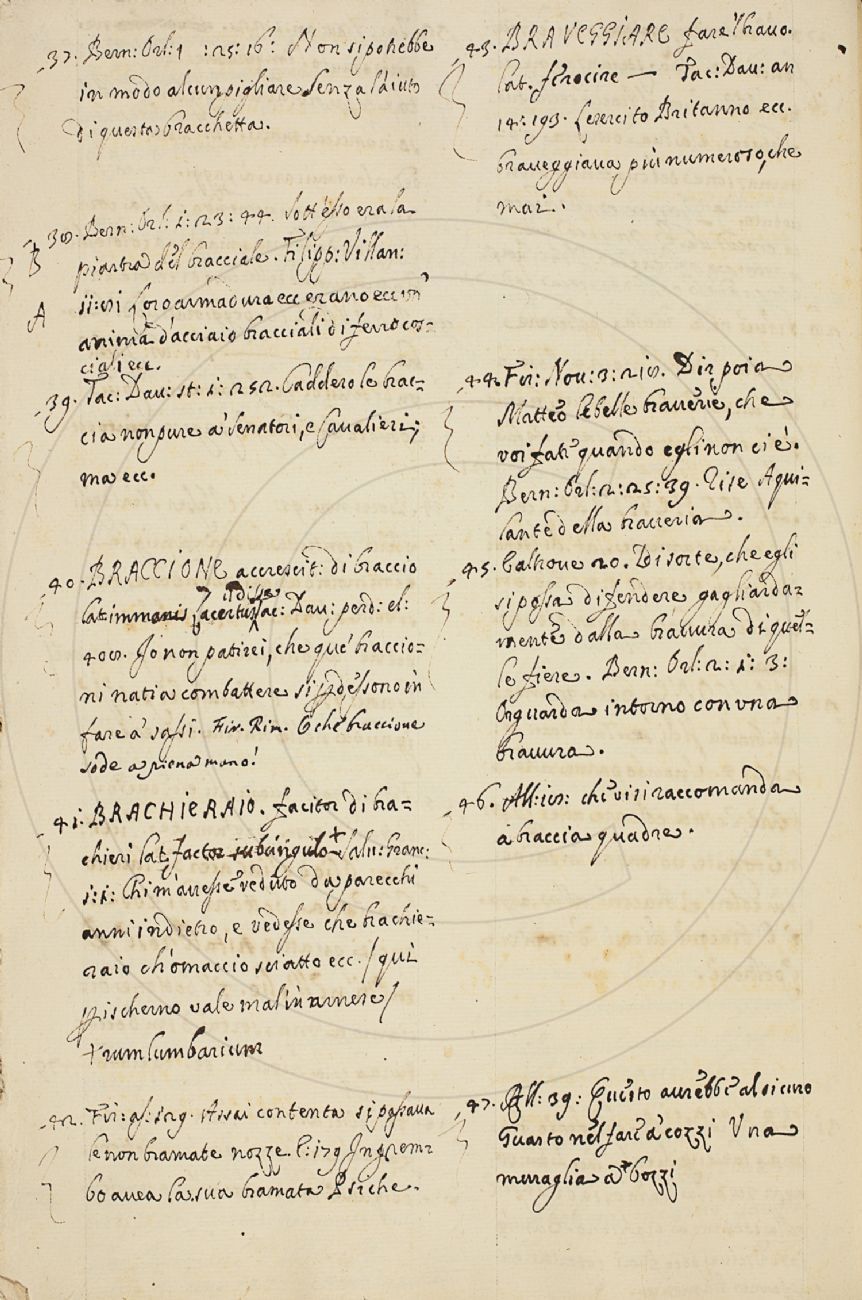 37. Bern: Orl: 1 : 25: 16: Non si potrebbe
in modo alcun pigliare Senza l'aiuto
di questa bracchetta.
38. Bern: Orl: 1: 23: 44. Sott'esso era la
B piastra del bracciale. Filipp: Villan:
A 11: 81 loro armadura ecc erano ecc con
anima d'acciaio bracciali di ferro cos=
ciali ecc.
39. Tac: Dau: st: 1: 252. Caddero le brac=
cia non pure a' Senatori, e Cavalieri;
ma ecc.
40. BRACCIONE accrescit: di braccio
lat immanis lacertus Tac: Dau: perd: el:
408. Io non patirei, che que' braccio=
ni nati a combattere si perdessono in
fare a' sassi. Fir. Rim. E che braccione
sode a piena mano!
41. BRACHIERAIO. facitor di bra=
chieri lat. factor subligulo + Salu: Granc:
1: 1: Chi m'avesse veduto da parecchi
anni indietro, e vedesse che brachie=
raio ch'omaccio sciatto ecc. / qui
p ischerno vale mal in arnese /
+ rum lumbarium
42. Fir: As: 129. Assai contenta si passava
le non bramate nozze. E: 179 In grem=
bo avea la sua bramata Psiche.
43. BRAVEGGIARE fare 'l bravo.
lat. ferocire — Tac: Dau: an
14: 193. L'esercito Britanno ecc.
braveggiava più numeroso, che
mai.
44. Fir: Nov: 3: 218. Dir poi a
Matteo le belle braverie, che
voi fate quando egli non ci è.
Bern: Orl: 2: 25: 39. Rise Aqui=
lante della braveria.
45. Calhove 20. Di sorte, che egli
si possa difendere gagliarda=
mente dalla bravura di quel=
le fiere. Bern: Orl: 2: 1: 3:
Orguarda intorno con una
bravura.
46. All: 18: che vi si raccomanda
a braccia quadre.
47. All: 39: Questo avrebbe al sicuro
Guasto nel fare a' cozzi Una
muraglia a bozzi